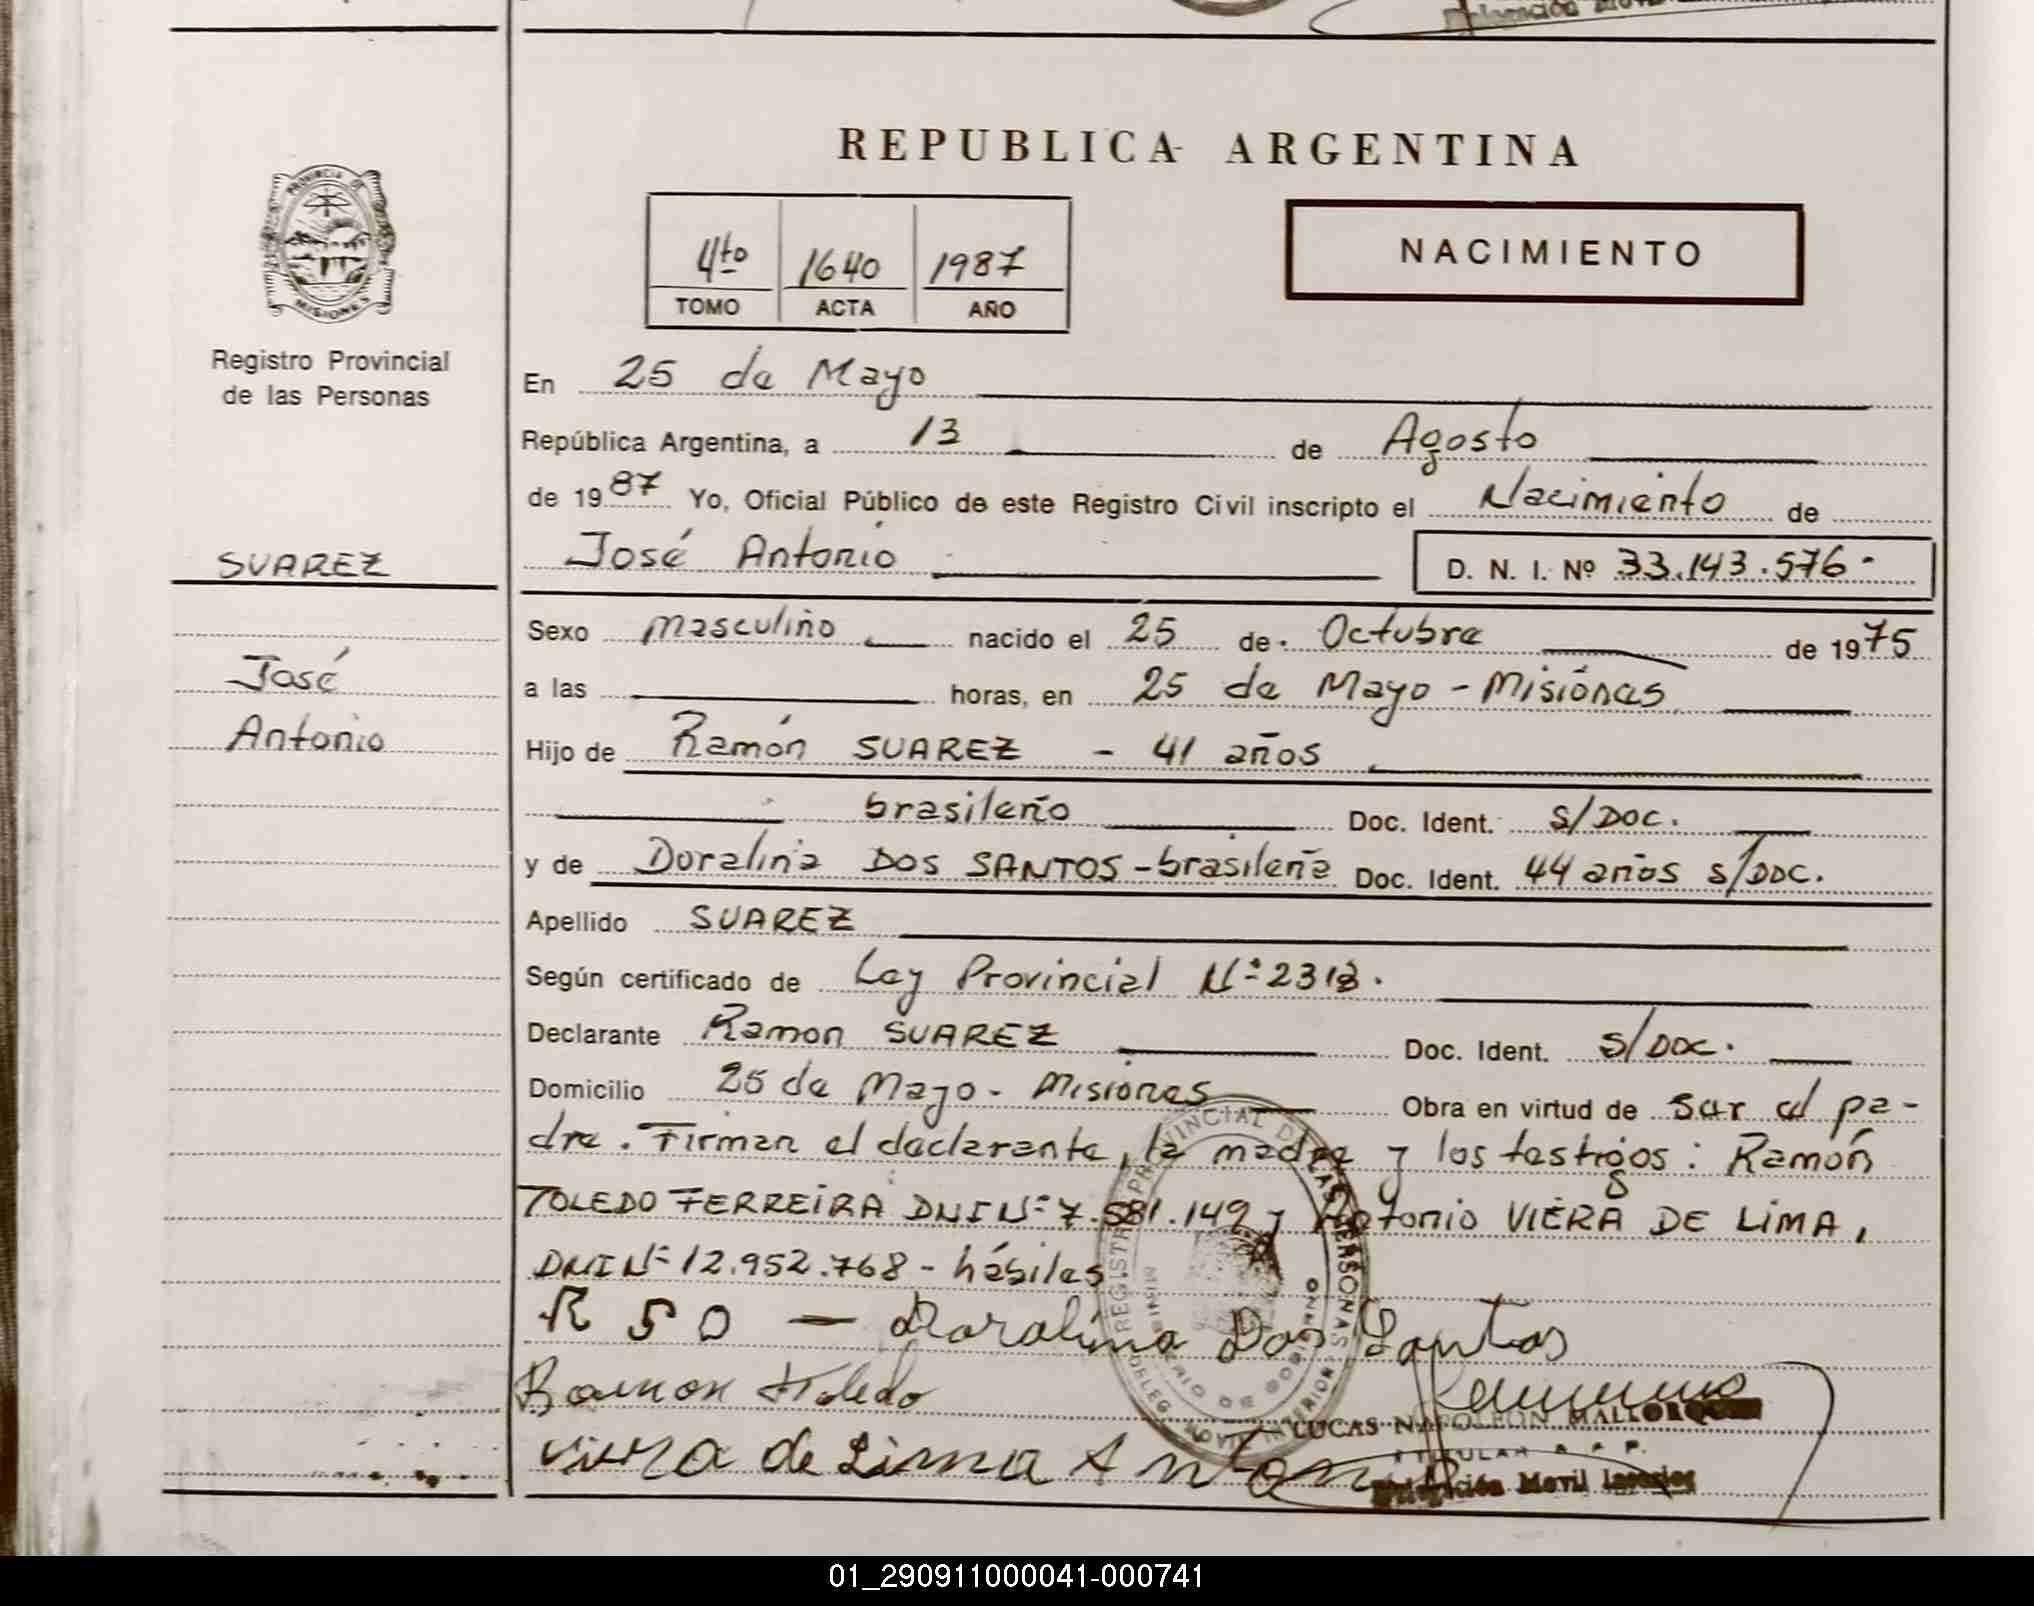 REPUBLICA ARGENTINA
PROVINCIA DE
MISIONES
Registro Provincial
de las Personas
4to 1640 1987
TOMO ACTA AÑO
NACIMIENTO
En 25 de Mayo
República Argentina, a 13 de Agosto
de 1987 Yo, Oficial Público de este Registro Civil inscripto el Nacimiento de
José Antonio D. N. I. Nº 33.143.576.
SUAREZ
José
Antonio
Sexo masculino nacido el 25 de Octubre de 1975
a las horas, en 25 de Mayo - Misiones
Hijo de Ramón SUAREZ - 41 años
brasileño Doc. Ident. s/DOC.
y de Doralina DOS SANTOS - brasileña Doc. Ident. 44 años s/DOC.
Apellido SUAREZ
Según certificado de Ley Provincial Nº 2313.
Declarante Ramon SUAREZ Doc. Ident. s/DOC.
Domicilio 25 de Mayo - Misiones Obra en virtud de ser el pa-
dre. Firman el declarante, la madre y los testigos: Ramón
TOLEDO FERREIRA DNI Nº 7.581.149 y Antonio VIERA DE LIMA,
DNI Nº 12.952.768 - hábiles
R S O - Doralina Dos Santos
Ramon Toledo
viera de Lima Anton
REGISTRO PROVINCIAL DE LAS PERSONAS
MINISTERIO DE GOBIERNO
LUCAS NAPOLEON MALLORQUIN
TITULAR R. P. P.
Delegación Movil
01_290911000041-000741